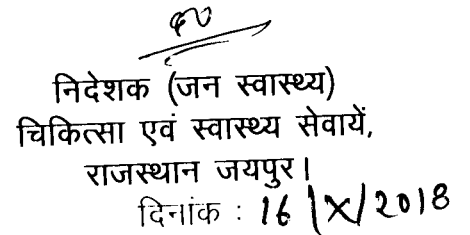 निदेशक (जन स्वास्थ्य)
चिकित्सा एवं स्वास्थ्य सेवायें,
राजस्थान जयपुर।
दिनांक : 16/X/2018